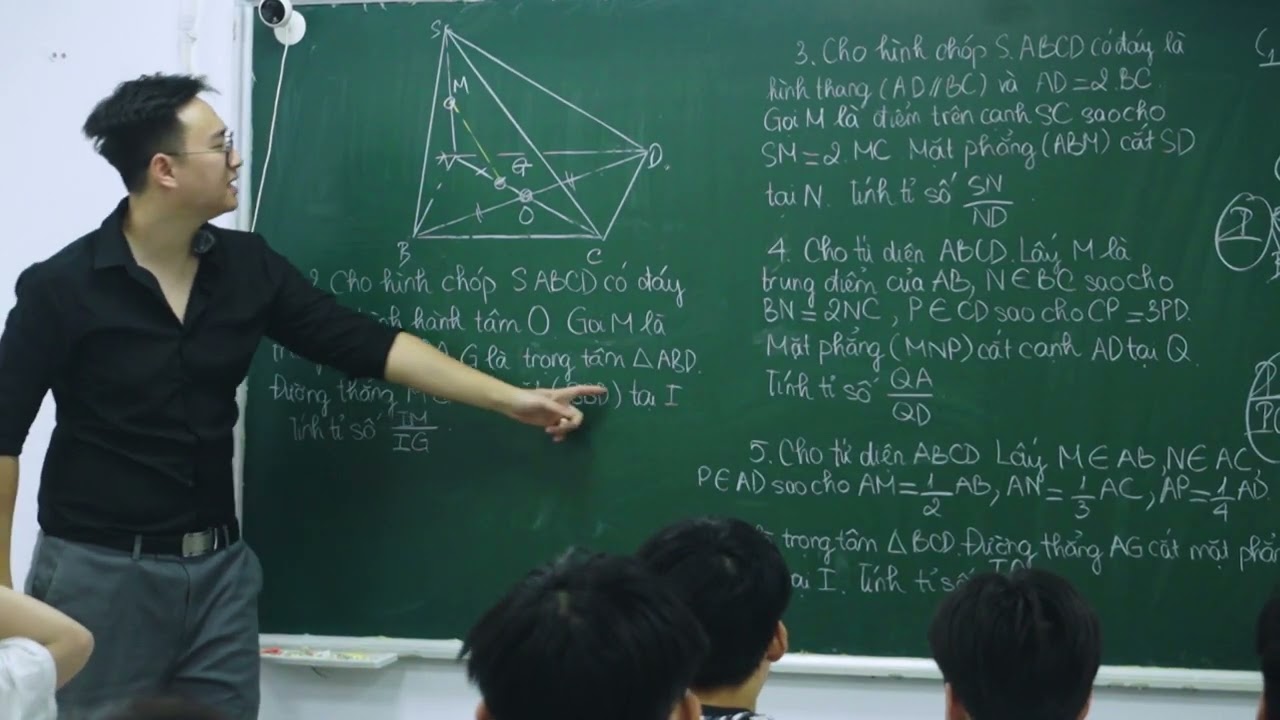 S
M
G
D.
O
B
C
2. Cho hình chóp S ABCD có đáy
hình hành tâm O. Gọi M là
G là trọng tâm △ABD.
Đường thẳng M ) tại I
Tính tỉ số IM/IG.
3. Cho hình chóp S.ABCD có đáy là
hình thang (AD//BC) và AD=2.BC.
Gọi M là điểm trên cạnh SC sao cho
SM=2.MC Mặt phẳng (ABM) cắt SD
tại N. Tính tỉ số SN/ND
4. Cho tứ diện ABCD. Lấy M là
trung điểm của AB, N∈BC sao cho
BN=2NC, P∈CD sao cho CP=3PD.
Mặt phẳng (MNP) cắt cạnh AD tại Q.
Tính tỉ số QA/QD
5. Cho tứ diện ABCD Lấy M∈AB, N∈AC,
P∈AD sao cho AM=1/2AB, AN=1/3AC, AP=1/4AD.
trọng tâm △BCD. Đường thẳng AG cắt mặt
tại I. Tính tỉ số
P